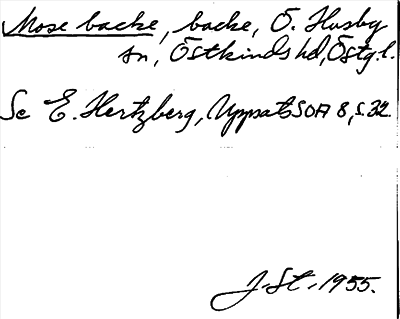 Mose backe, backe, Ö. Husby
sn, Östkinds hd, Östg.l.
Se E. Hertzberg, Uppsats SOÄ 8, s. 32.
J. St. 1955.